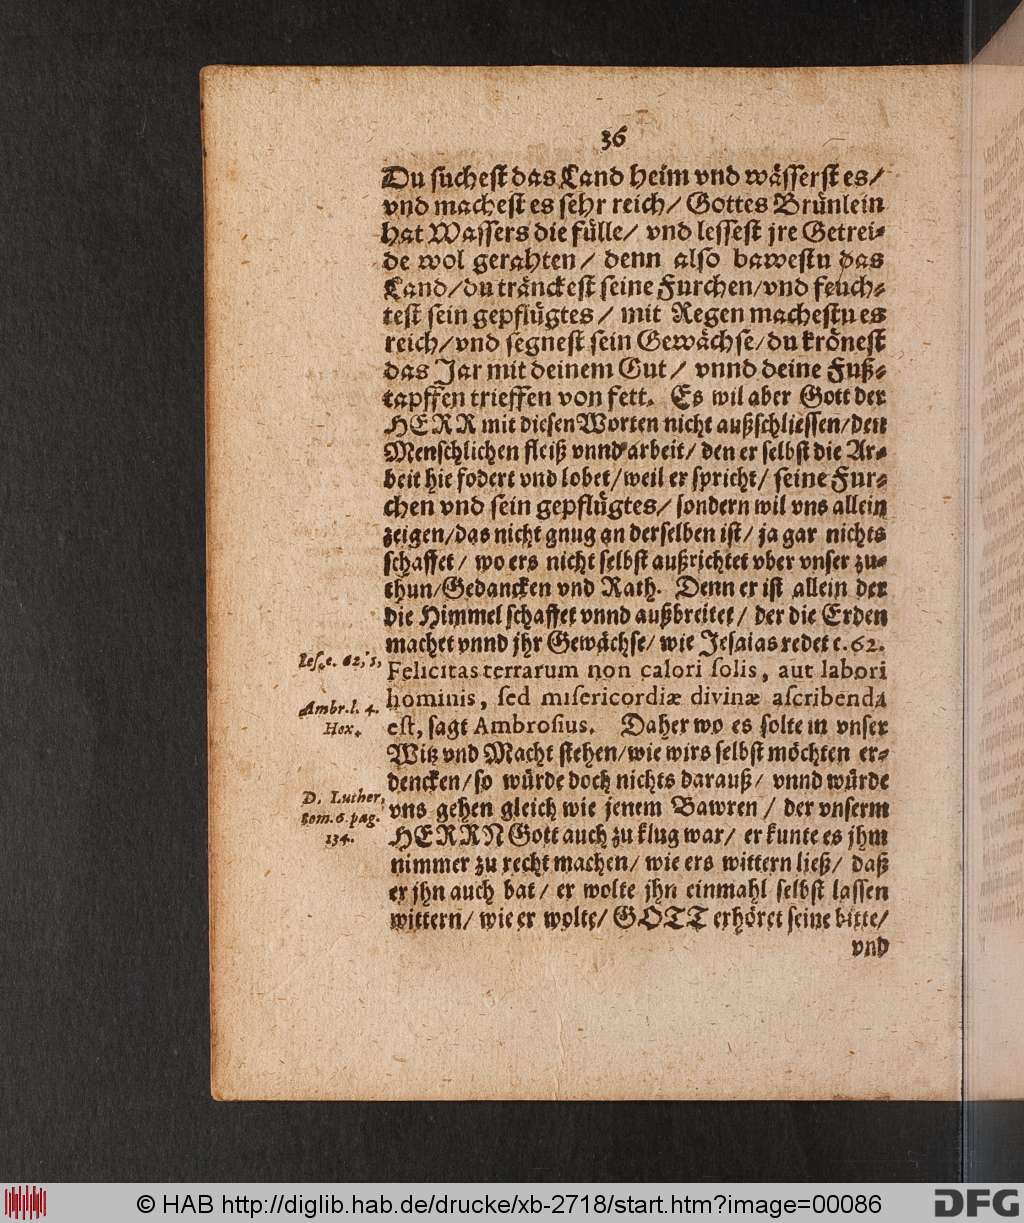 36
Du suchest das Land heim vnd wässerst es/
vnd machest es sehr reich/ Gottes Brünlein
hat Wassers die fülle/ vnd lessest jre Getrei-
de wol gerahten/ denn also bawestu das
Land/ du tränckest seine Furchen/ vnd feuch-
test sein gepflügtes/ mit Regen machestu es
reich/ vnd segnest sein Gewächse/ du krönest
das Jar mit deinem Gut/ vnnd deine Fuß-
tapffen trieffen von fett. Es wil aber Gott der
HERR mit diesen Worten nicht außschliessen/ den
Menschlichen fleiß vnnd arbeit/ den er selbst die Ar-
beit hie fodert vnd lobet/ weil er spricht/ seine Fur-
chen vnd sein gepflügtes/ sondern wil vns allein
zeigen/ das nicht gnug an derselben ist/ ja gar nichts
schaffet/ wo ers nicht selbst außrichtet vber vnser zu-
thun/ Gedancken vnd Rath. Denn er ist allein der
die Himmel schaffet vnnd außbreitet/ der die Erden
machet vnnd jhr Gewächse/ wie Jesaias redet c. 62.
Jes. c. 62, 5,
Felicitas terrarum non calori solis, aut labori
hominis, sed misericordiæ divinæ ascribenda
Ambr. l. 4.
Hex.
est, sagt Ambrosius. Daher wo es solte in vnser
Witz vnd Macht stehen/ wie wirs selbst möchten er-
dencken/ so würde doch nichts darauß/ vnnd würde
D. Luther,
tom. 6. pag.
134.
vns gehen gleich wie jenem Bawren/ der vnserm
HERRN Gott auch zu klug war/ er kunte es jhm
nimmer zu recht machen/ wie ers wittern ließ/ daß
er jhn auch bat/ er wolte jhn einmahl selbst lassen
wittern/ wie er wolte/ GOTT erhöret seine bitte/
vnd
© HAB http://diglib.hab.de/drucke/xb-2718/start.htm?image=00086
DFG